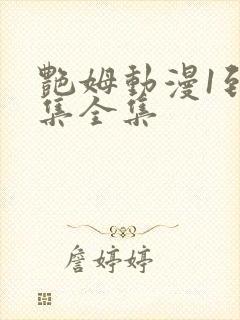 艷姆動漫1到
集全集
詹婷婷